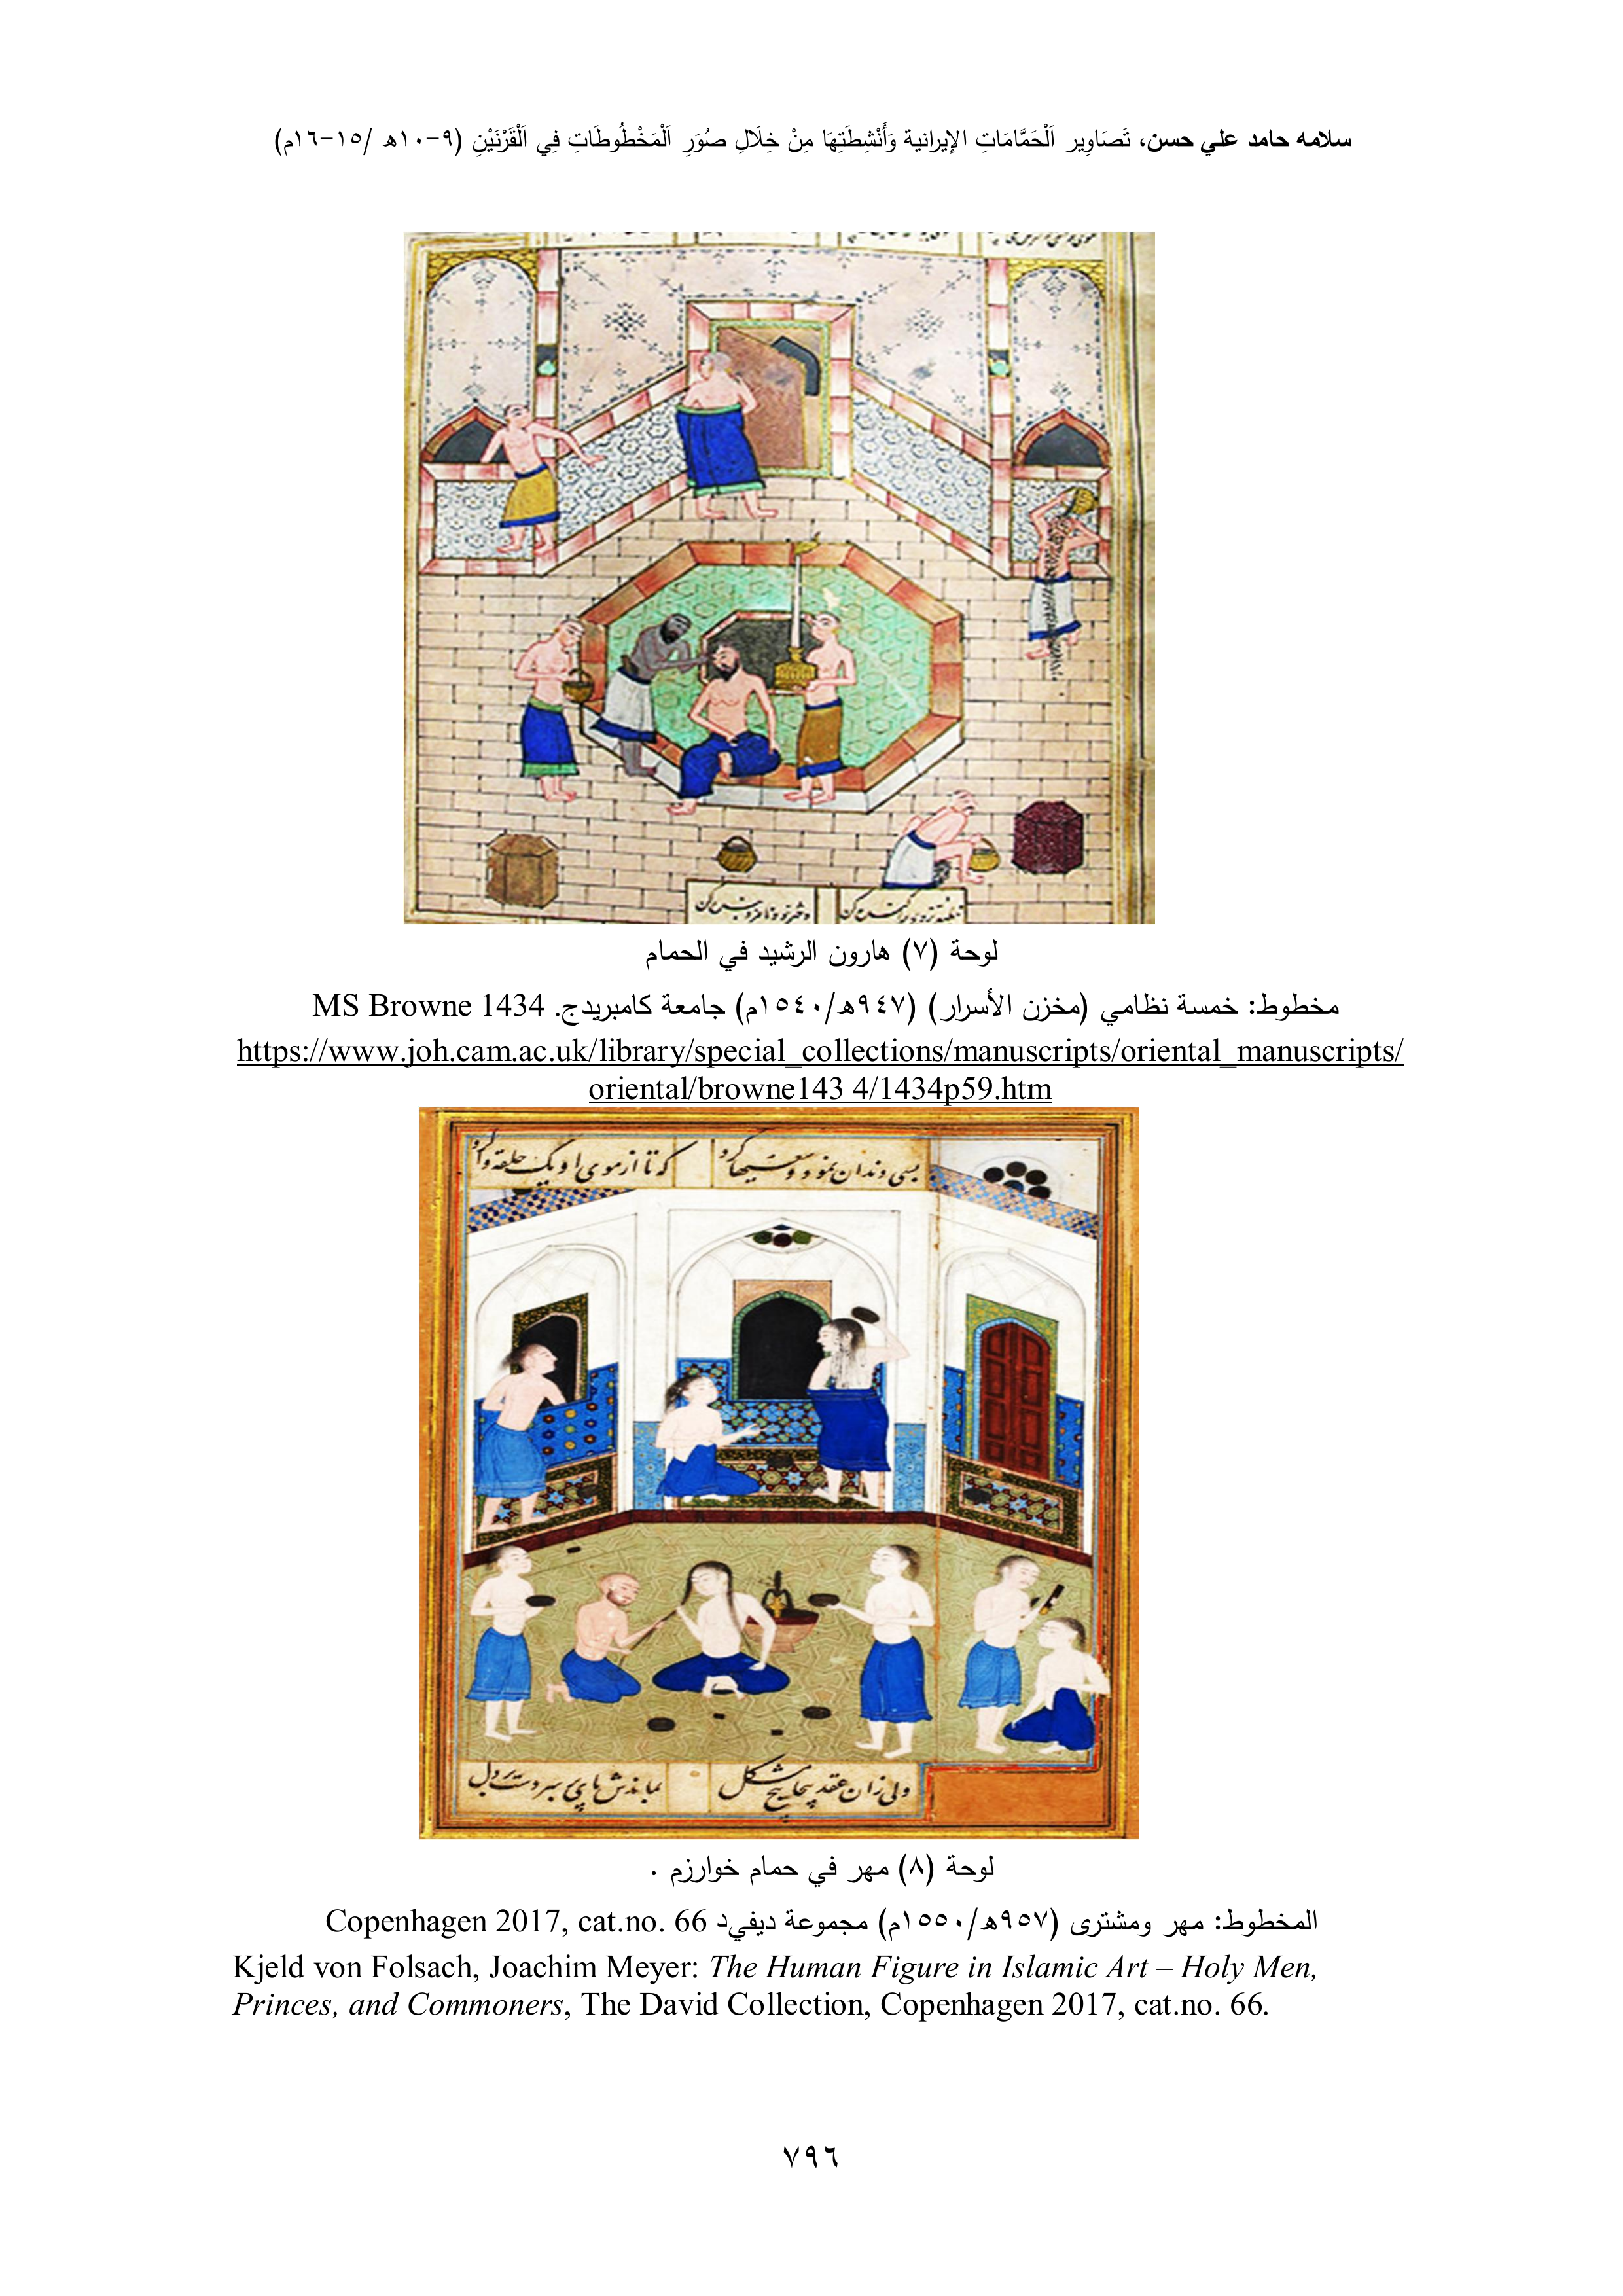 سلامه حامد علي حسن، تَصَاوِير اَلْحَمَّامَاتِ الإيرانية وَأَنْشِطَتِهَا مِنْ خِلَالِ صُوَرِ اَلْمَخْطُوطَاتِ فِي اَلْقَرْنَيْنِ (٩-١٠ه /١٥-١٦م)
لوحة (٧) هارون الرشيد في الحمام
مخطوط: خمسة نظامي (مخزن الأسرار) (٩٤٧ه/١٥٤٠م) جامعة كامبريدج. MS Browne 1434
https://www.joh.cam.ac.uk/library/special_collections/manuscripts/oriental_manuscripts/
oriental/browne143 4/1434p59.htm
بسی دندان نمود و
که تا از موی او یک حلقه وا کرد
ولی زان عقد پیچاپیچ مشکل
بماندش پای بر سر دست بر دل
لوحة (٨) مهر في حمام خوارزم .
المخطوط: مهر ومشترى (٩٥٧ه/١٥٥٠م) مجموعة ديفيد Copenhagen 2017, cat.no. 66
Kjeld von Folsach, Joachim Meyer: The Human Figure in Islamic Art – Holy Men,
Princes, and Commoners, The David Collection, Copenhagen 2017, cat.no. 66.
٧٩٦